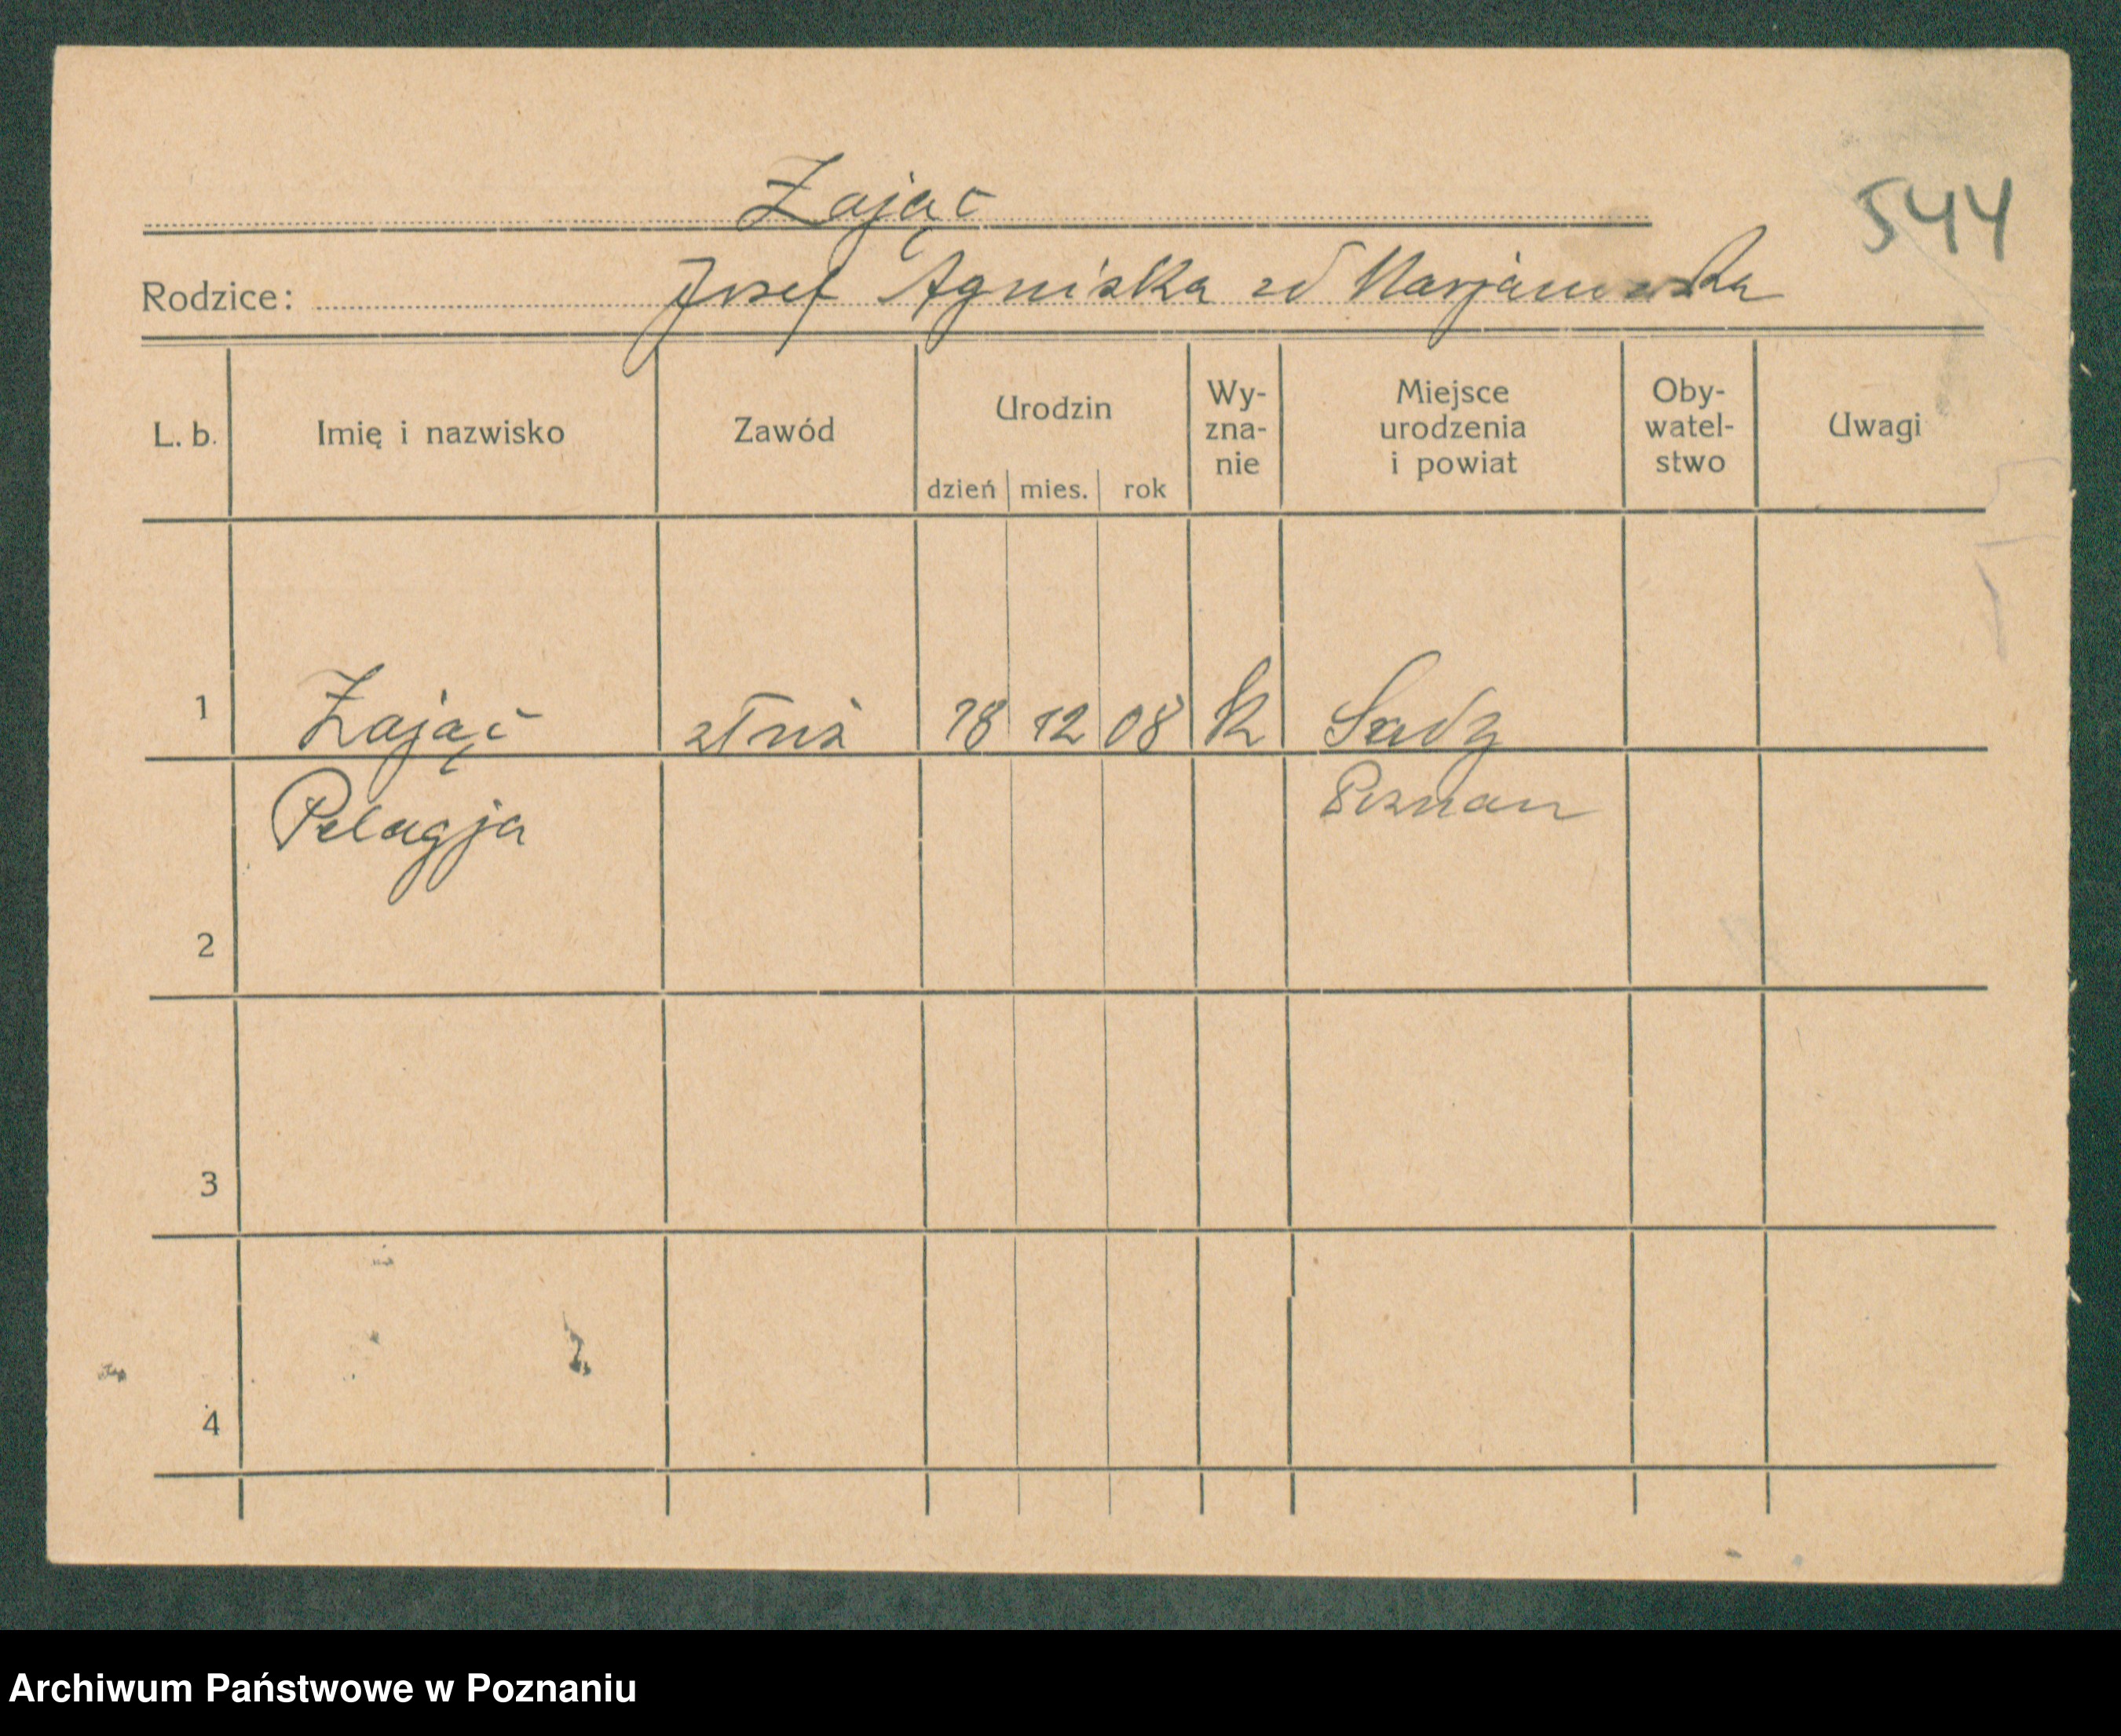 544
Zając
Rodzice: Josef Agniska zd Marjanowska
L. b. Imię i nazwisko Zawód Urodzin dzień mies. rok Wy-zna-nie Miejsce urodzenia i powiat Oby-watel-stwo Uwagi
1 Zając 18 12 08 k Sady
Pelagja Poznan
2
3
4
Archiwum Państwowe w Poznaniu